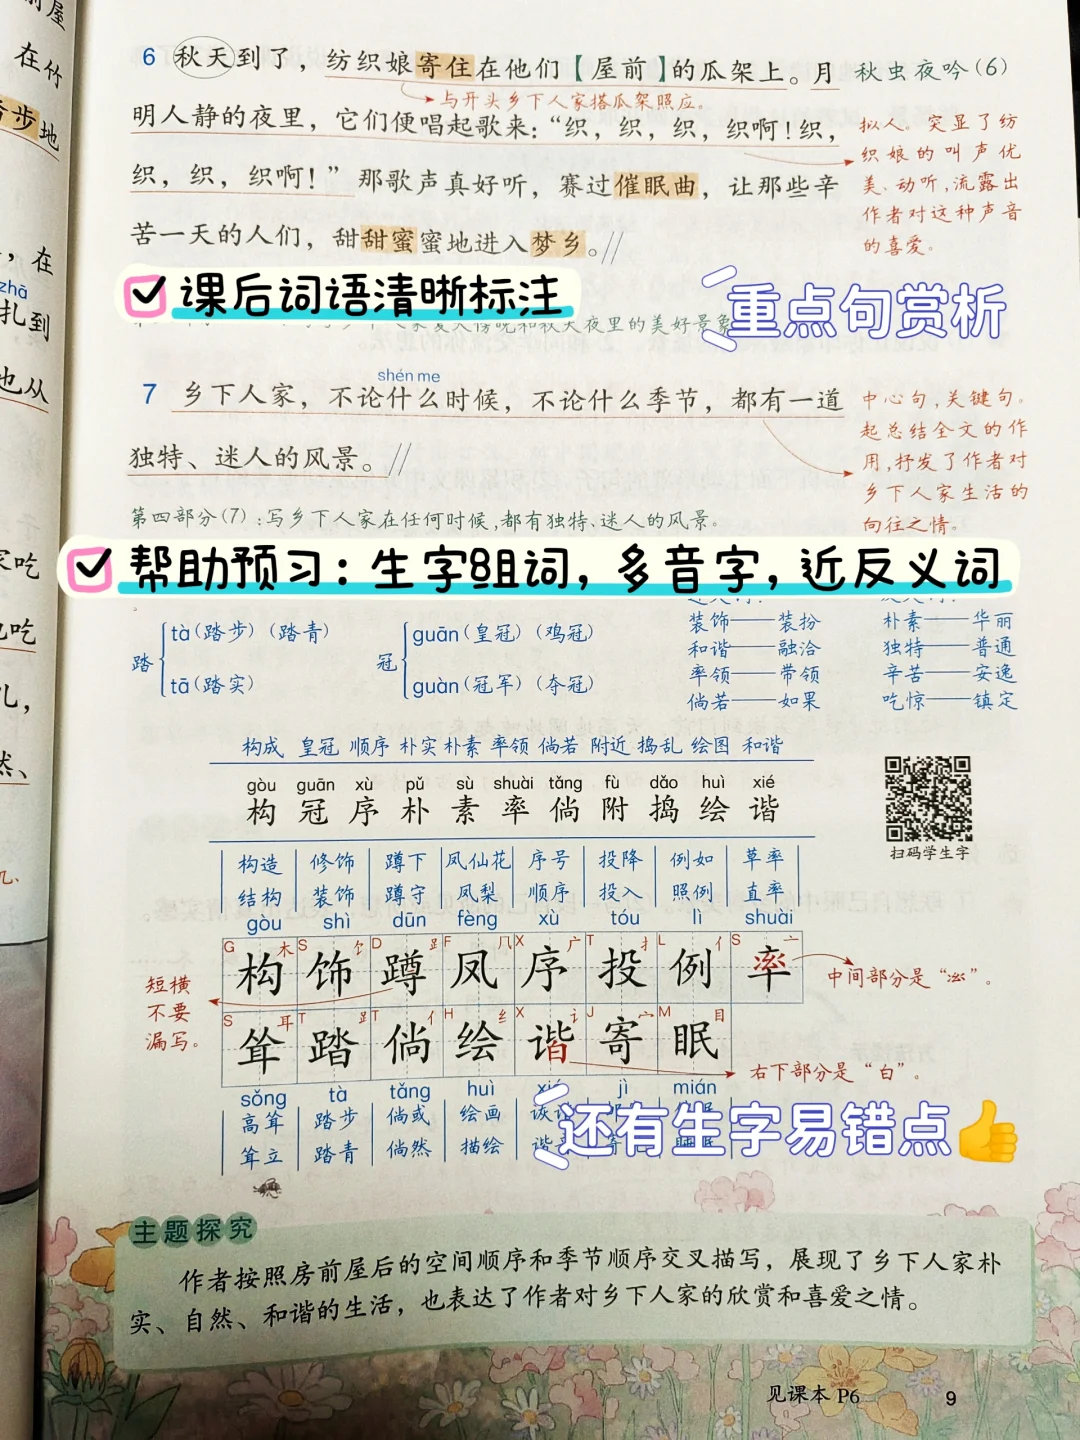 在竹
步地
,在
zhā
扎到
也从
吃
吃
儿,
然、
6 秋天到了,纺织娘寄住在他们【屋前】的瓜架上。月
秋虫夜吟(6)
与开头乡下人家搭瓜架照应。
明人静的夜里,它们便唱起歌来:“织,织,织,织啊!织,
织,织,织啊!”那歌声真好听,赛过催眠曲,让那些辛
苦一天的人们,甜甜蜜蜜地进入梦乡。//
拟人。突显了纺
织娘的叫声优
美、动听,流露出
作者对这种声音
的喜爱。
课后词语清晰标注
重点句赏析
家夏天傍晚和秋天夜里的美好景象
shén me
7 乡下人家,不论什么时候,不论什么季节,都有一道
独特、迷人的风景。//
中心句,关键句。
起总结全文的作
用,抒发了作者对
乡下人家生活的
向往之情。
第四部分(7):写乡下人家在任何时候,都有独特、迷人的风景。
帮助预习:生字组词,多音字,近反义词
踏
tà(踏步)(踏青)
tā(踏实)
冠
guān(皇冠)(鸡冠)
guàn(冠军)(夺冠)
装饰——装扮
和谐——融洽
率领——带领
倘若——如果
朴素——华丽
独特——普通
辛苦——安逸
吃惊——镇定
构成 皇冠 顺序 朴实 朴素 率领 倘若 附近 捣乱 绘图 和谐
gòu guān xù pǔ sù shuài tǎng fù dǎo huì xié
构 冠 序 朴 素 率 倘 附 捣 绘 谐
扫码学生字
构造 修饰 蹲下 凤仙花 序号 投降 例如 草率
结构 装饰 蹲守 凤梨 顺序 投入 照例 直率
gòu shì dūn fèng xù tóu lì shuài
G 木 S 饣 D 𧾷 F 几 X 广 T 扌 L 亻 S 亠
构 饰 蹲 凤 序 投 例 率
短横
不要
漏写。
中间部分是“”。
S 耳 T 𧾷 T 亻 H 纟 X 讠 J 宀 M 目
耸 踏 倘 绘 谐 寄 眠
右下部分是“白”。
sǒng tà tǎng huì xié jì mián
高耸 踏步 倘或 绘画
耸立 踏青 倘然 描绘
还有生字易错点👍
主题探究
作者按照房前屋后的空间顺序和季节顺序交叉描写,展现了乡下人家朴
实、自然、和谐的生活,也表达了作者对乡下人家的欣赏和喜爱之情。
见课本 P6
9